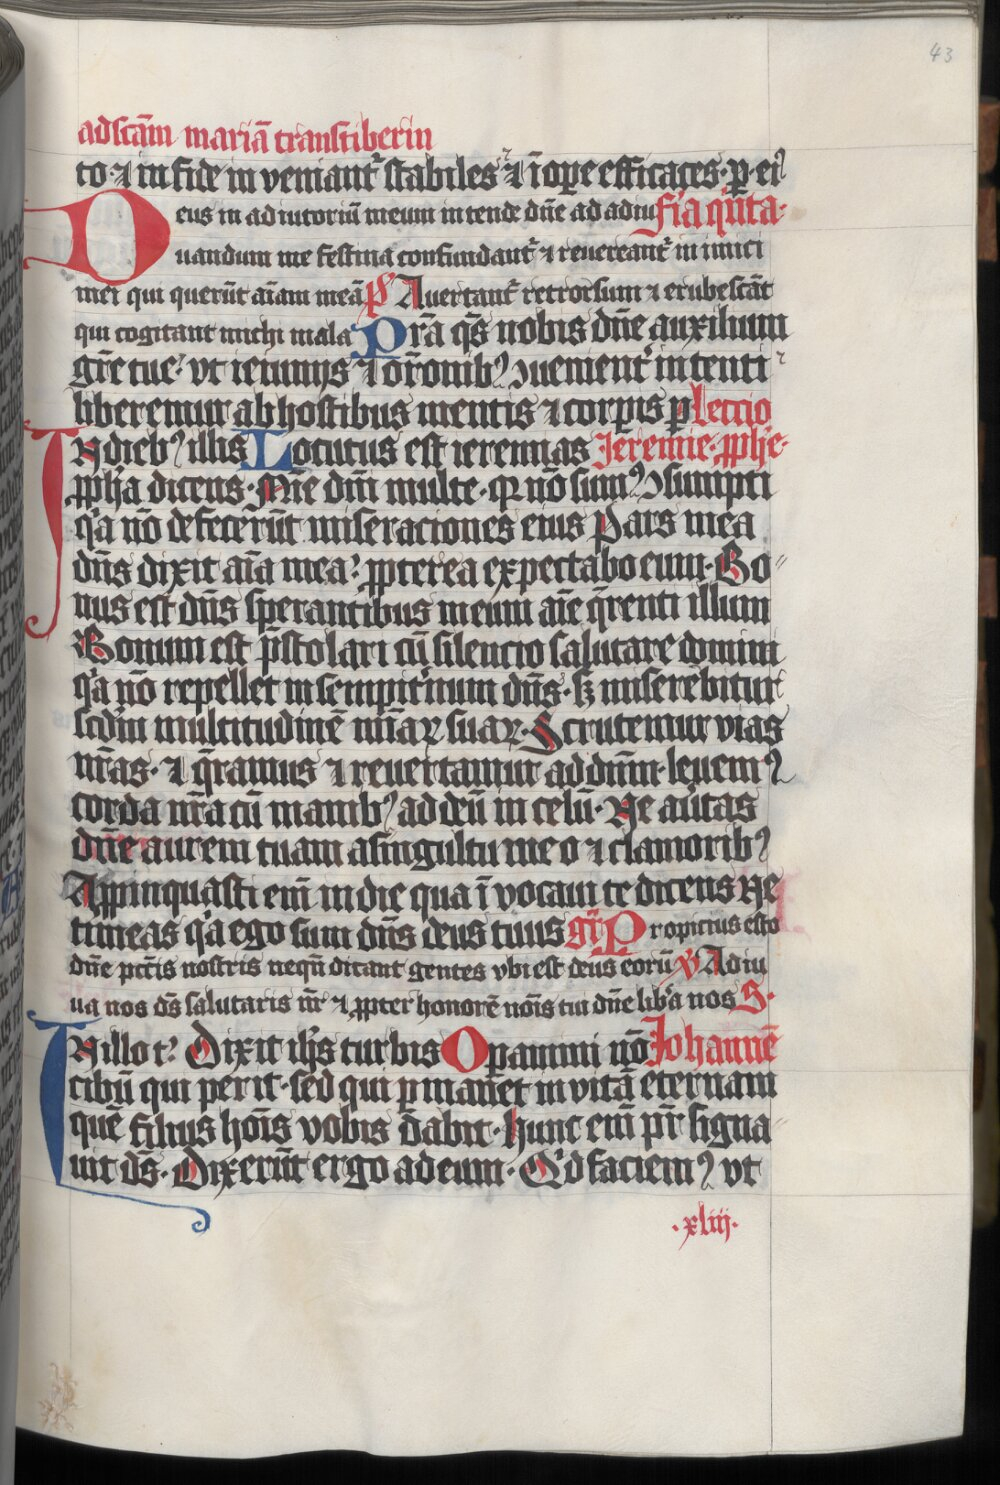 43
ad scām mariā transtiberin
to· ⁊ in fide inveniantʳ stabiles ⁊ ī oꝑe efficaces· ꝑ· eiꝰ
Deus in adiutoriū meum intende dn̄e ad adiu fīa qn̄ta·
uandum me festina confundantʳ ⁊ reuereantʳ inimici
mei qui querūt aīam meā ps̄ Auertantʳ retrorsum ⁊ erubescāt
qui cogitant michi mala Prā qs̄ nobis dn̄e auxilium
gr̄e tue· vt ieiunijs ⁊ or̄onibꝰ ꝯuenientʳ intenti
liberemur ab hostibus mentis ⁊ corꝑis p Leccio
In diebꝰ illis Locutus est ieremias Jeremie· ꝓphe·
ꝓpha dicens· Mīe dn̄i multe· ꝙ nō sumꝰ ꝯsumpti
q̄a nō defecerūt miseraciones eius Pars mea
dn̄s dixit aīa mea· ꝓpterea expectabo eum· Bo〃
nus est dn̄s sperantibus in eum aīe q̄renti illum
Bonum est p̄stolari cū silencio salutare domini
q̄a nō repellet in sempitʳnum dn̄s· sꝫ miserebitur
scdm̄ multitudinē mīaꝝ suaꝝ· Scrutemur vias
nr̄as· ⁊ q̄ramus ⁊ reuertamur ad dn̄m· leuemꝰ
corda nr̄a cū manibꝰ ad deū in celū· Ne aūtas
dn̄e aurem tuam a singultu meo ⁊ clamoribꝰ
Appinquasti em̄ in die qua īvocaui te dicens Ne
timeas q̄a ego sum dn̄s deus tuus gr̄ Propicius esto
dn̄e pcc̄tis nostris neqn̄ dicant gentes vbi est deus eorū v̄ Adiu
ua nos ds̄ salutaris nr̄ ⁊ ꝓpter honorē nōis tui dn̄e libʳa nos S·
In illo t· Dixit ih̄s turbis Opamini nō Johannē
cibū qui perit· sed qui ꝑmanet in vitā eternam
quē filius hoīs vobis dabit· hunc em̄ pr̄ signa〃
uit ds̄· Dixerūt ergo ad eum· Qd faciemꝰ vt
·xliij·